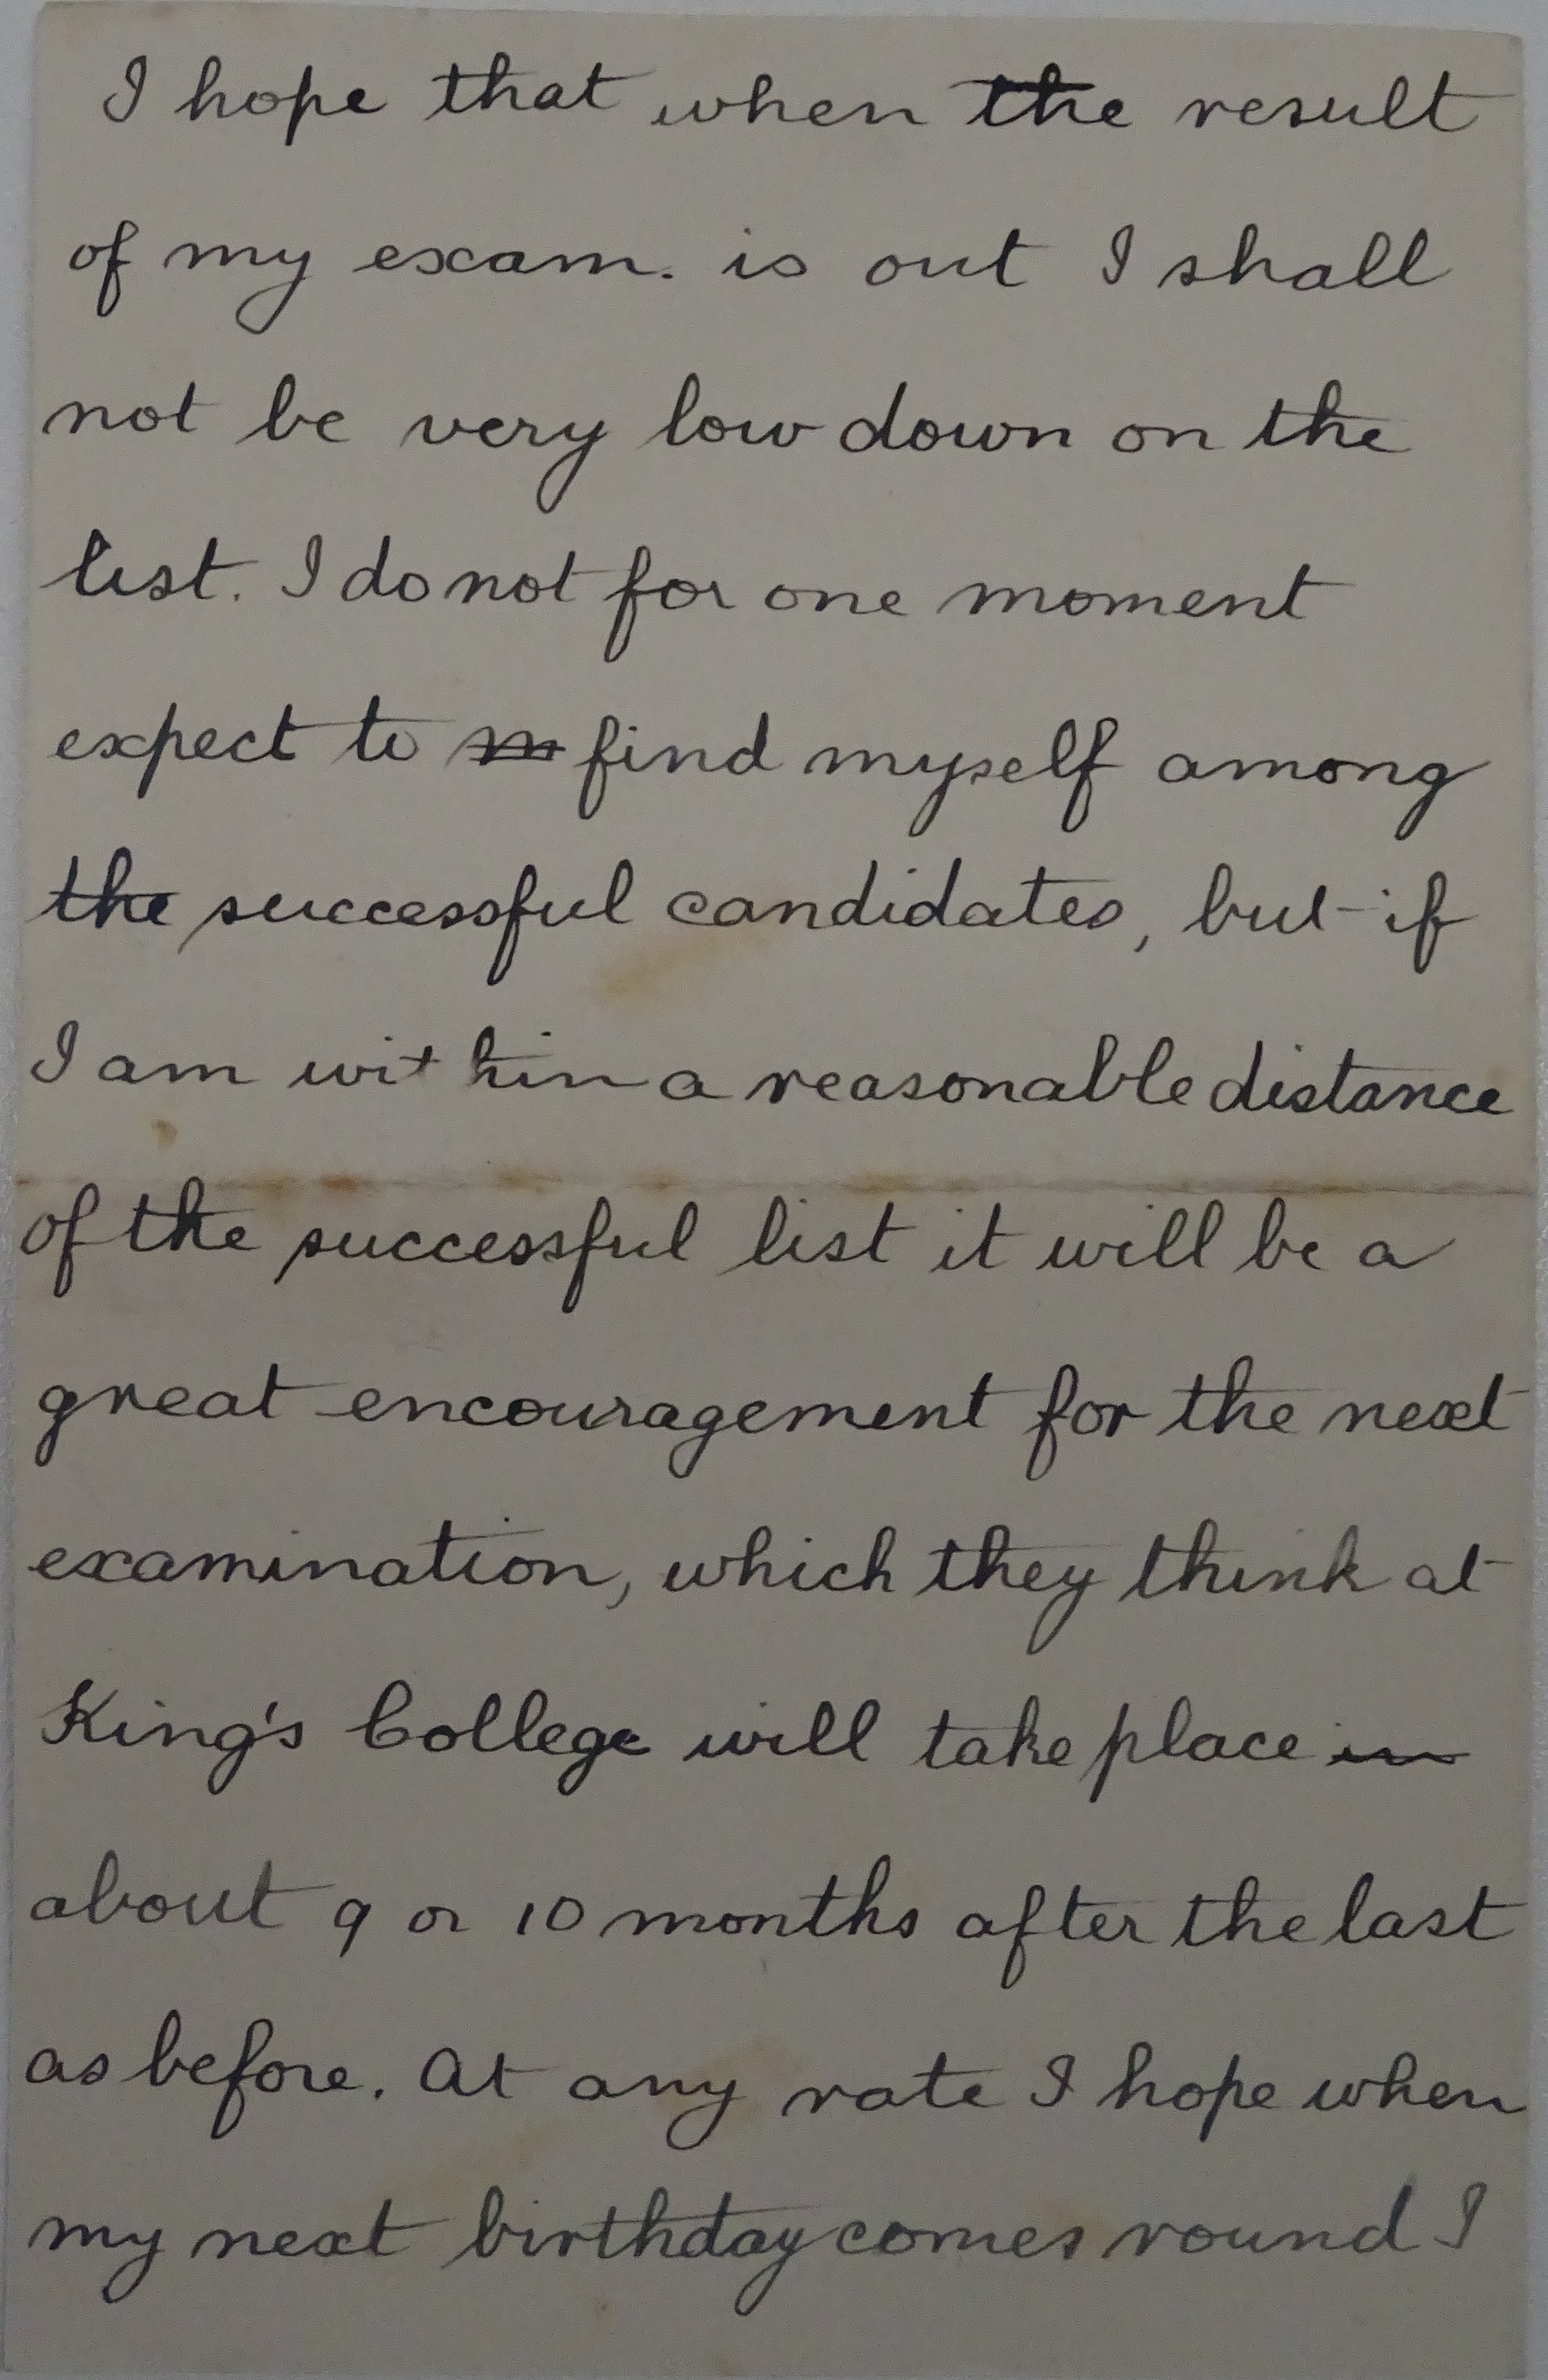 I hope that when the result
of my exam. is out I shall
not be very low down on the
list. I do not for one moment
expect to m find myself among
the successful candidates, but if
I am within a reasonable distance
of the successful list it will be a
great encouragement for the next
examination, which they think at
King's College will take place in
about 9 or 10 months after the last
as before. At any rate I hope when
my next birthday comes round I